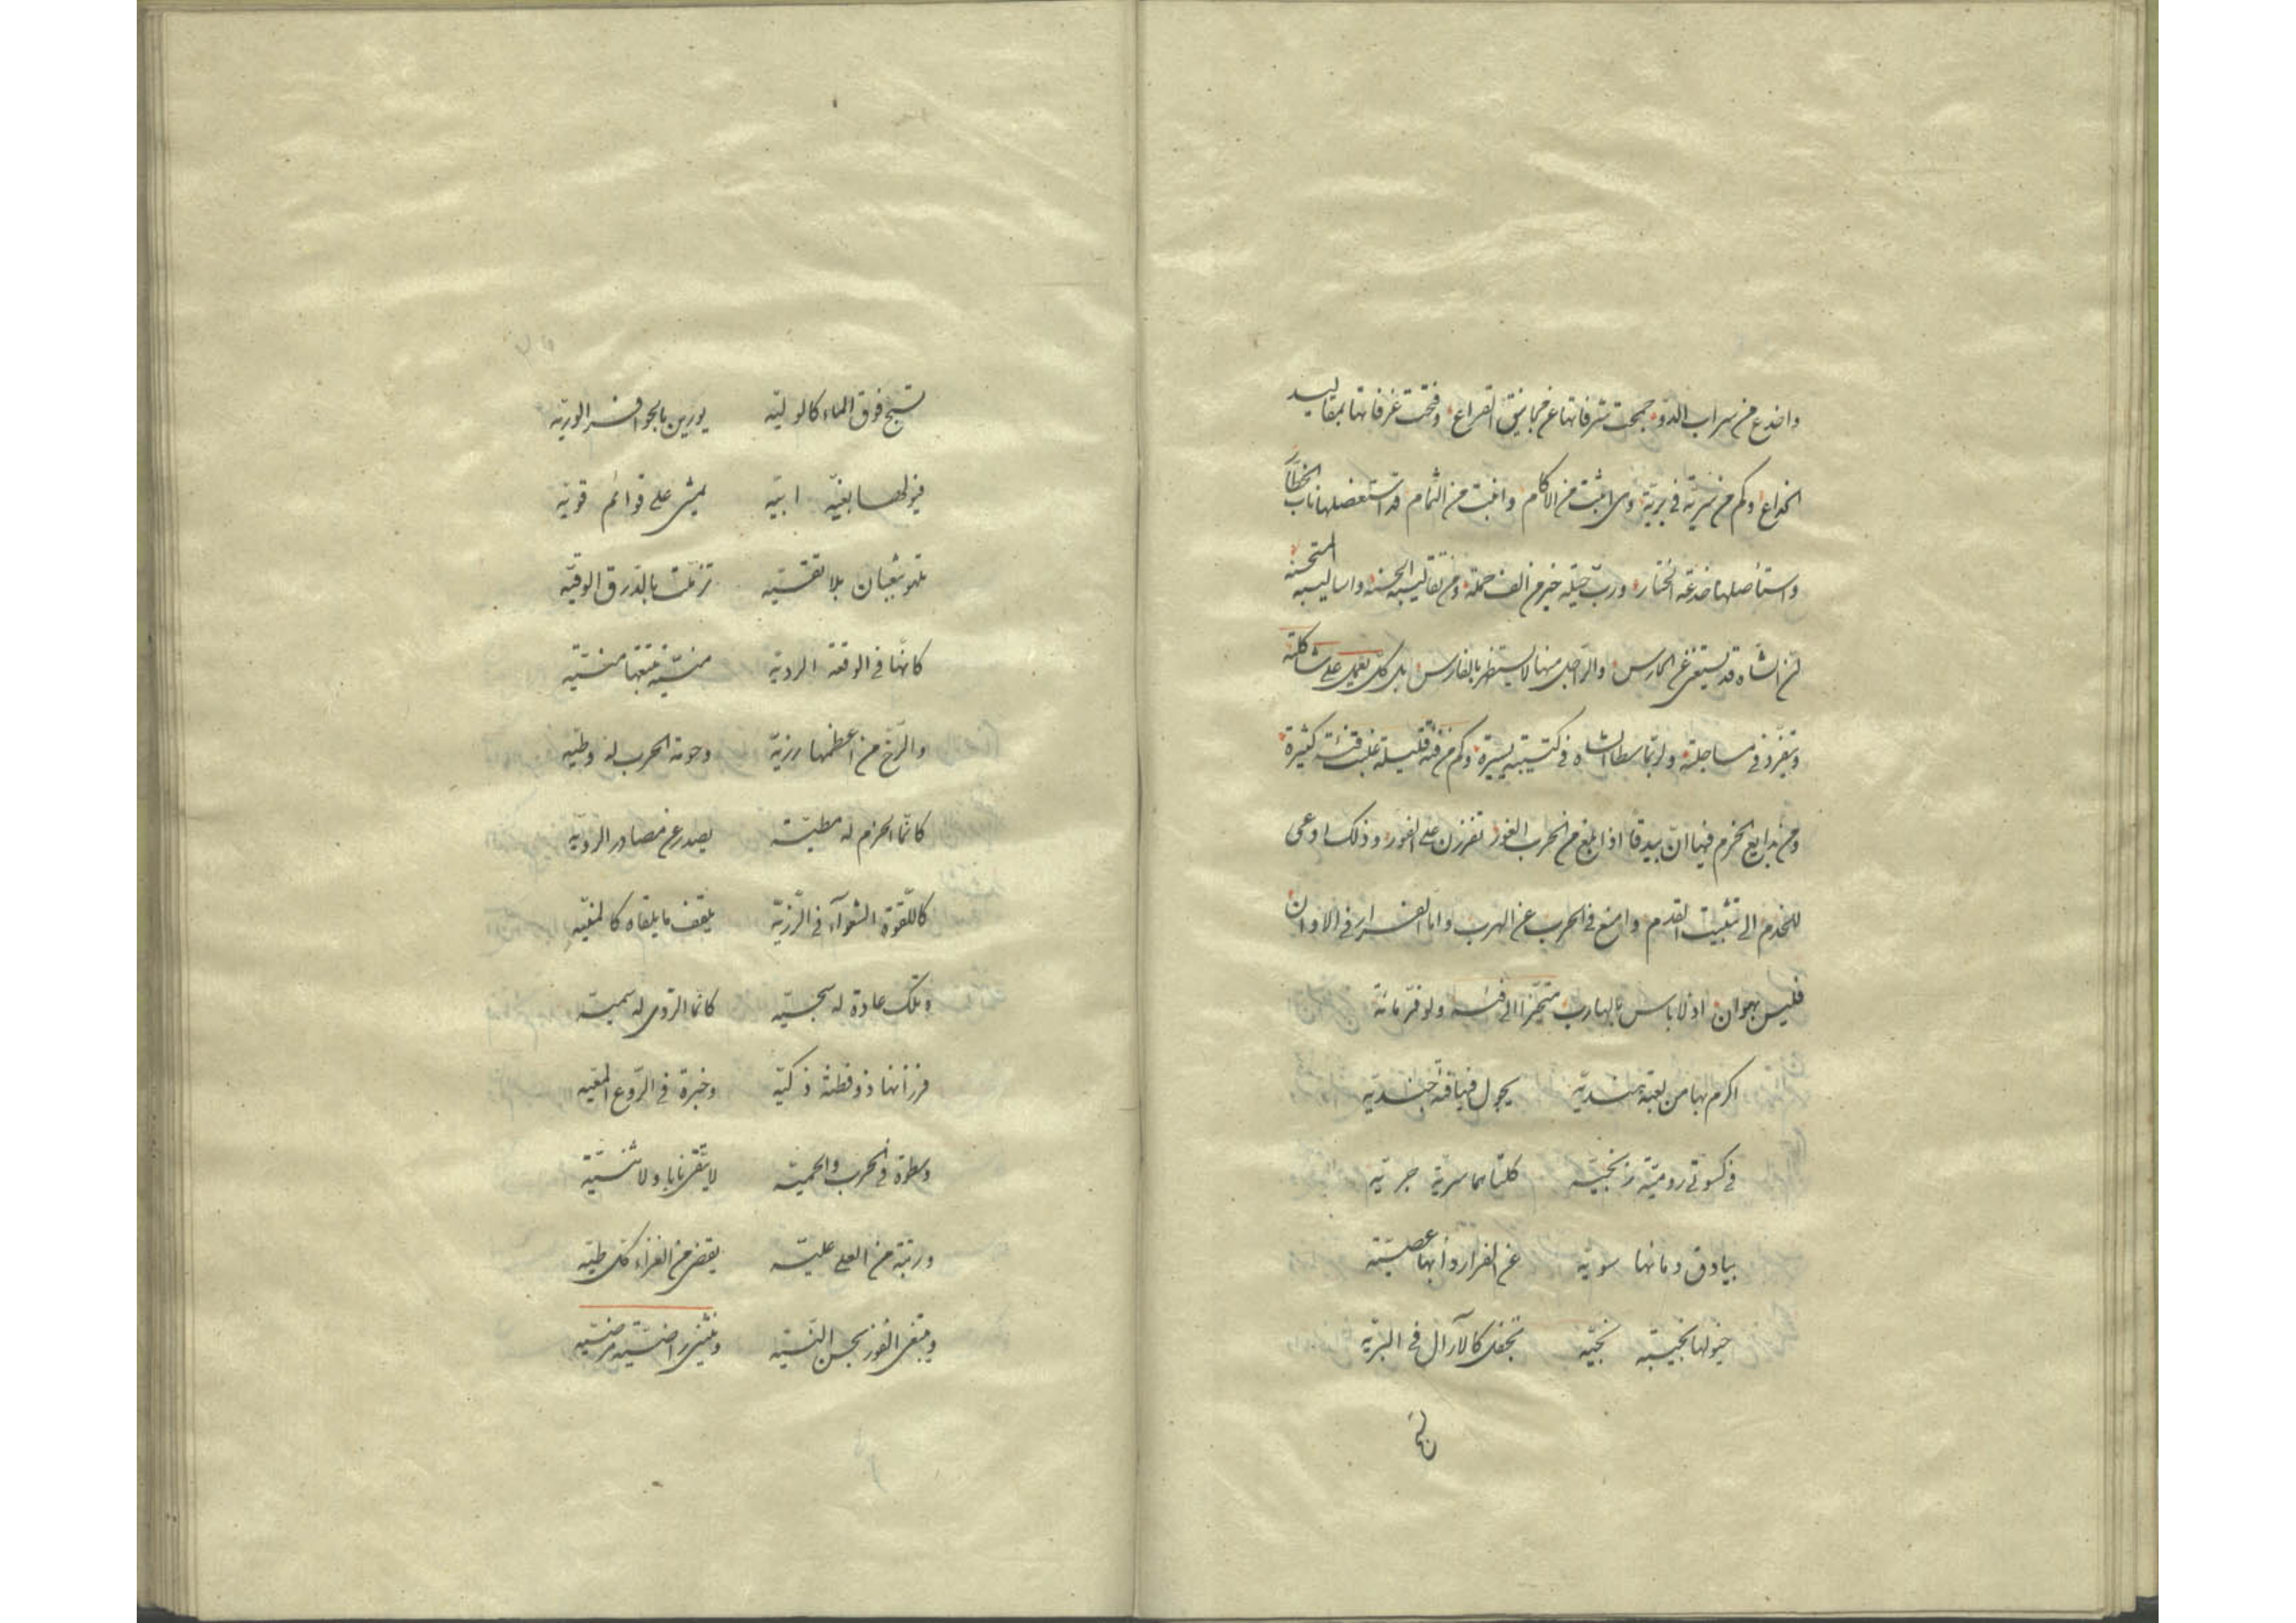 واخدع من سراب الدو جمحت شرفاتها عن مجانيق القراع وفتحت غرفاتها بمقاليد
الخداع وكم من سرية في برية وهي اثبت من الاكام واثبت من الثمام قد استعضلها ناب الخطا
واستأصلها خدعة الختار ورب حيلة خير من الف حملة ومن تقاليبه الحسنة واساليبه المستحسنة
ان الشاه قد يستغني عن الحارس والراجل منها لا يستظهر بالفارس بل كل يعمل على شاكلته
ويتفرد في مساجلته ولربما سطا الشاه في كتيبة يسيرة وكم من فئة قليلة غلبت فئة كثيرة
ومن بدايع الحزم فيها ان بيدقا اذا بلغ من الحرب الغور تفرزن على الفور وذلك ادعى
للخدم الى تثبيت القدم وامنع في الحرب عن الهرب واما الفرار في الاوان
فليس بهوان اذ لا باس بالهارب متحيزا الى فئة ولو فر مائة
اكرم بها من لعبة هندية يجول فيها فئة جندية
في كسوتي رومية زنجية كلتاهما سرية جرية
بيادق دماؤها سوية عن الفرار دأبها عصية
خيولها نجيبة نجية تجفل كالآرال في البرية
تسبح فوق الماء كالولية يورين بالحوافر الورية
فيولها بغية ابية تمشي على قوائم قوية
تلهو بثعبان بلا تقية تزملت بالدرق الوقية
كانها في الوقعة الردية منية تتبعها منية
والرخ من اعظمها رزية وحومة الحرب له وطية
كانما الحزم له مطية يصدر عن مصادر الردية
كاللقوة الشغوآء في الرزية يلقف ما يلقاه كالمنية
وتلك عادة له سجية كانما الردى له سمية
فرزانها ذو فطنة ذكية وخبرة في الروع المعية
وسطوة في الحرب والحمية لا يتقي نابا ولا ثنية
ورتبة من العلى علية يقضي من الغزاء كل طية
ويبتغي الفوز بحسن النية وينثني راضية مرضية